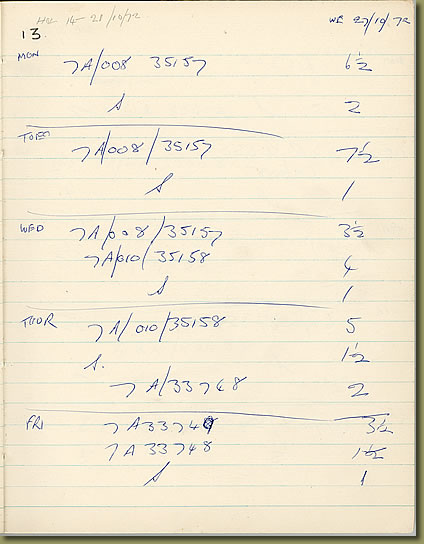 HOL 14 - 21/10/72 WE 27/10/72
13.
MON 7A/008 35157 6½
S 2
TUES 7A/008/35157 7½
S 1
WED 7A/008/35157 3½
7A/010/35158 4
S 1
THUR 7A/010/35158 5
S. 1½
7A/33748 2
FRI 7A33749 3½
7A33748 1½
S 1